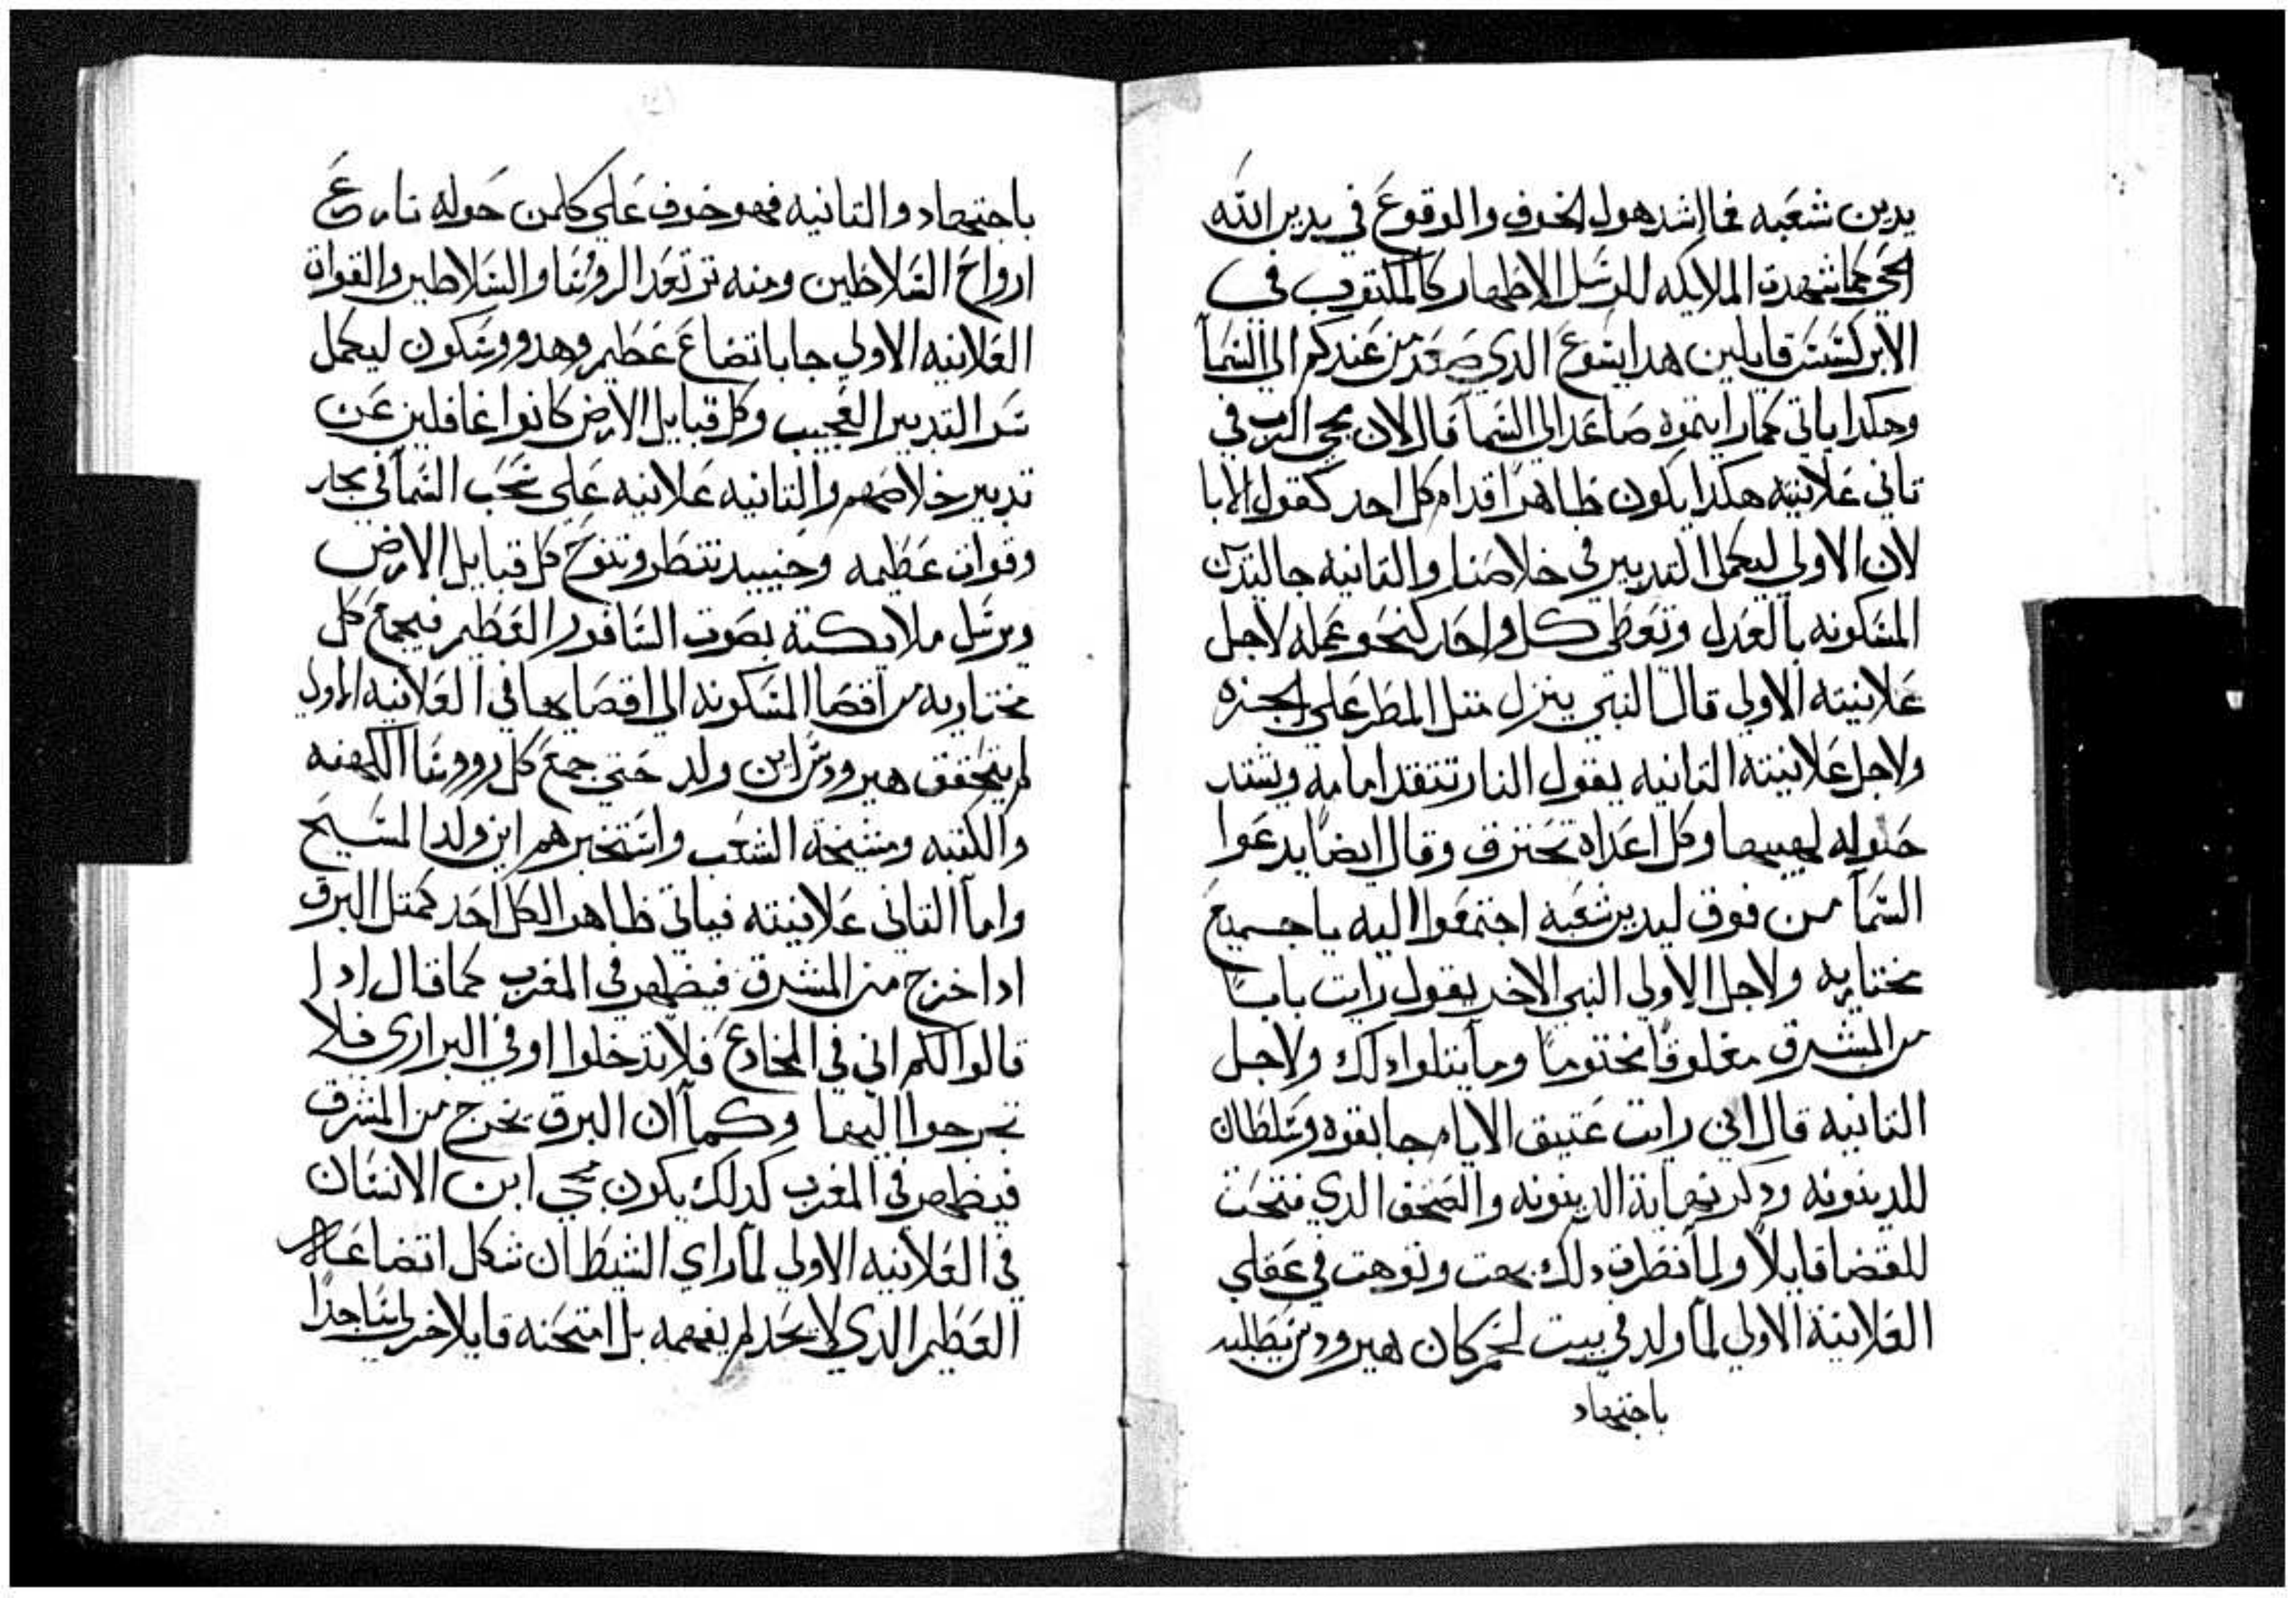 يدين شعبه فما اشد هول الخوف والوقوع في يدين الله
الحي كما شهدت الملايكه للرسل الاطهار كالمكتوب في
الابركسيس قايلين هدا يسوع الدي صعد من عندكم الي السمآ
وهكدا ياتي كما رايتموه صاعدا الي السمآ قال لان مجي الرب في
تاني علانيته هكدا يكون ظاهرًا قدام كل احد كقول الابا
لان الاولي ليكمل التدبير في خلاصنا والتانيه جا ليدين
المسكونه بالعدل وتعطي كل واحد كنحو عمله لاجل
علانيته الاولي قال النبي ينزل متل المطر علي الجزه
ولاجل علانيته التانيه يقول النار تتقد امامه وتشتد
حوله لهيبها وكل اعداه تحترق وقال ايضًا يدعوا
السمآ من فوق ليدين شعبه اجتمعوا اليه يا جميع
مختاريه ولاجل الاولي النبي الاخر يقول رايت بابًا
من المشرق مغلوقًا مختومًا وما يتلوا دلك ولاجل
التانيه قال اني رايت عتيق الايام جا بقوه وسلطان
للدينونه ودكر نهاية الدينونه والصحف الدي فتحت
للقضا قايلاً ولما نظرت دلك بهت وتوهت في عقلي
العلانية الاولي لما ولد في بيت لحم كان هيرودس يطلبه
باجتهاد
باجتهاد والتانيه فهو خوف علي كلمن حوله نازع
ارواح السلاطين ومنه ترتعد الروسا والسلاطين والقوات
العلانيه الاولي جا باتضاع عظيم وهدو وسكون ليكمل
سر التدبير العجيب وكل قبايل الارض كانوا غافلين عن
تدبير خلاصهم والتانيه علانيه علي سحب السمآ في بجار
وقوات عظيمه وحينيد تنظر وتنوح كل قبايل الارض
ويرسل ملايكته بصوت السافور العظيم فيجمع كل
مختاريه من اقصا المسكونه الي اقصايها في العلانيه الاولي
لم يتحقق هيرودس اين ولد حتي جمع كل روسا الكهنه
والكتبه ومشيخة الشعب واستخبرهم اين ولد المسيح
واما التاني علانيته فياتي ظاهر الكل احد كمتل البرق
ادا خرج من المشرق فيظهر في المغرب كما قال ادا
قالوا لكم اني في المخادع فلا تدخلوا او في البراري فلا
تخرجوا اليها وكمآ ان البرق يخرج من المشرق
فيظهر في المغرب كدلك يكون مجي ابن الانسان
في العلانيه الاولي لما راي الشيطان شكل اتضاعه
العظيم الدي لا يحد لم يفهمه بل امتحنه قايلا خر لي ساجدًا